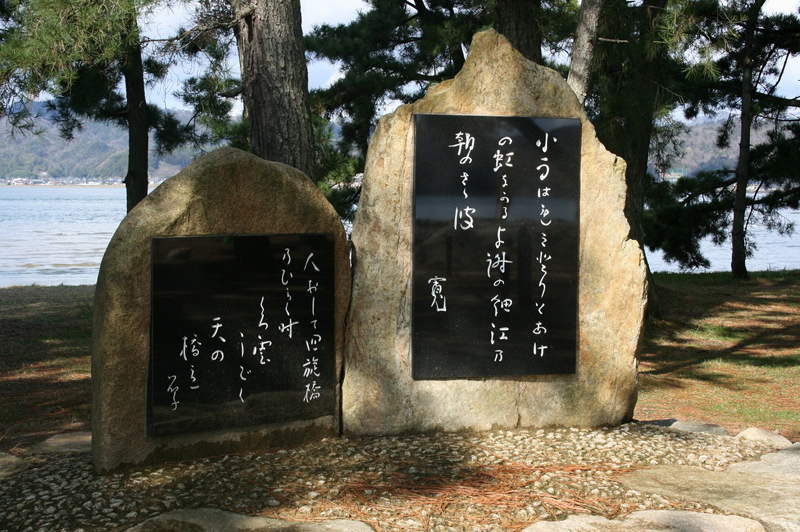 小雨はれみどりとあけ
の虹ながる与謝の細江乃
朝のさゝ波
寛
人おして回旋橋
乃ひらく時
くろ雲
うごく
天の
橋立
晶子